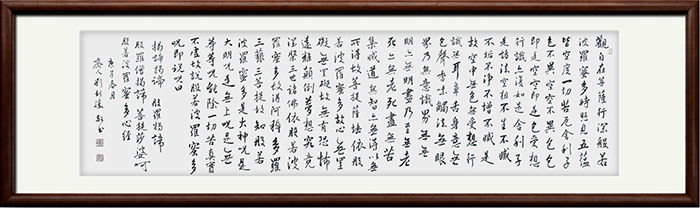 觀自在菩薩行深般若
波羅蜜多時照見五蘊
皆空度一切苦厄舍利子
色不異空空不異色色
即是空空即是色受想
行識亦復如是舍利子
是諸法空相不生不滅
不垢不淨不增不減是
故空中無色無受想行
識無眼耳鼻舌身意無
色聲香味觸法無眼
界乃至無意識界無無
明亦無無明盡乃至無老
死亦無老死盡無苦
集滅道無智亦無得以無
所得故菩提薩埵依般
若波羅蜜多故心無罣
礙無罣礙故無有恐怖
遠離顛倒夢想究竟
涅槃三世諸佛依般若波
羅蜜多故得阿耨多羅
三藐三菩提故知般若
波羅蜜多是大神咒是
大明咒是無上咒是無
等等咒能除一切苦真實
不虛故說般若波羅蜜多
咒即說咒曰
揭諦揭諦 般羅揭諦
般羅僧揭諦菩提莎婆呵
般若波羅蜜多心經
庚子春月